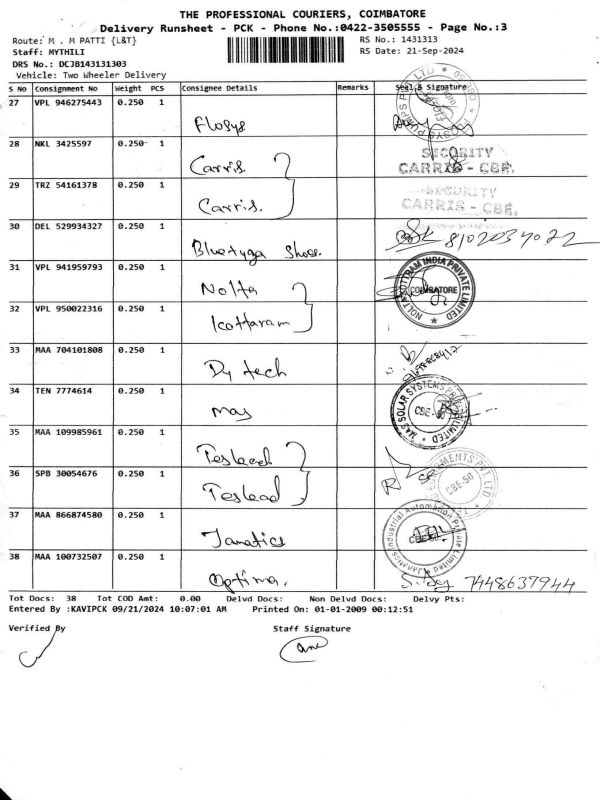 THE PROFESSIONAL COURIERS, COIMBATORE
Delivery Runsheet - PCK - Phone No.:0422-3505555 - Page No.:3
Route: M . M PATTI {L&T}
RS No.: 1431313
Staff: MYTHILI
RS Date: 21-Sep-2024
DRS No.: DCJB143131303
Vehicle: Two Wheeler Delivery
S No Consignment No Weight PCS Consignee Details Remarks Seal & Signature
27 VPL 946275443 0.250 1
Flosys.
28 NKL 3425597 0.250 1
Carris.
SECURITY
CARRIS - CBE.
29 TRZ 54161378 0.250 1
Carris.
SECURITY
CARRIS - CBE.
30 DEL 529934327 0.250 1
Bluetyga Shoes.
8102034022
31 VPL 941959793 0.250 1
Nolta
COIMBATORE
32 VPL 950022316 0.250 1
Kottaram
33 MAA 704101808 0.250 1
Dy tech
34 TEN 7774614 0.250 1
mas
MAS SOLAR SYSTEMS PRIVATE LIMITED
CBE-50
35 MAA 109985961 0.250 1
Teslead
36 SPB 30054676 0.250 1
Teslead
CBE-50
37 MAA 866874580 0.250 1
Janatics
Janatics Industrial Automation Private Limited
38 MAA 100732507 0.250 1
Optima.
7448637944
Tot Docs: 38 Tot COD Amt: 0.00 Delvd Docs: Non Delvd Docs: Delvy Pts:
Entered By :KAVIPCK 09/21/2024 10:07:01 AM Printed On: 01-01-2009 00:12:51
Verified By
Staff Signature